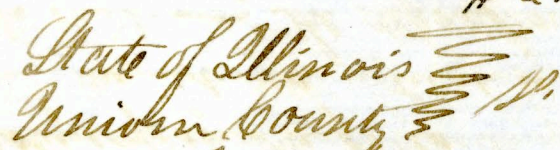 State of Illinois
Union County ss.